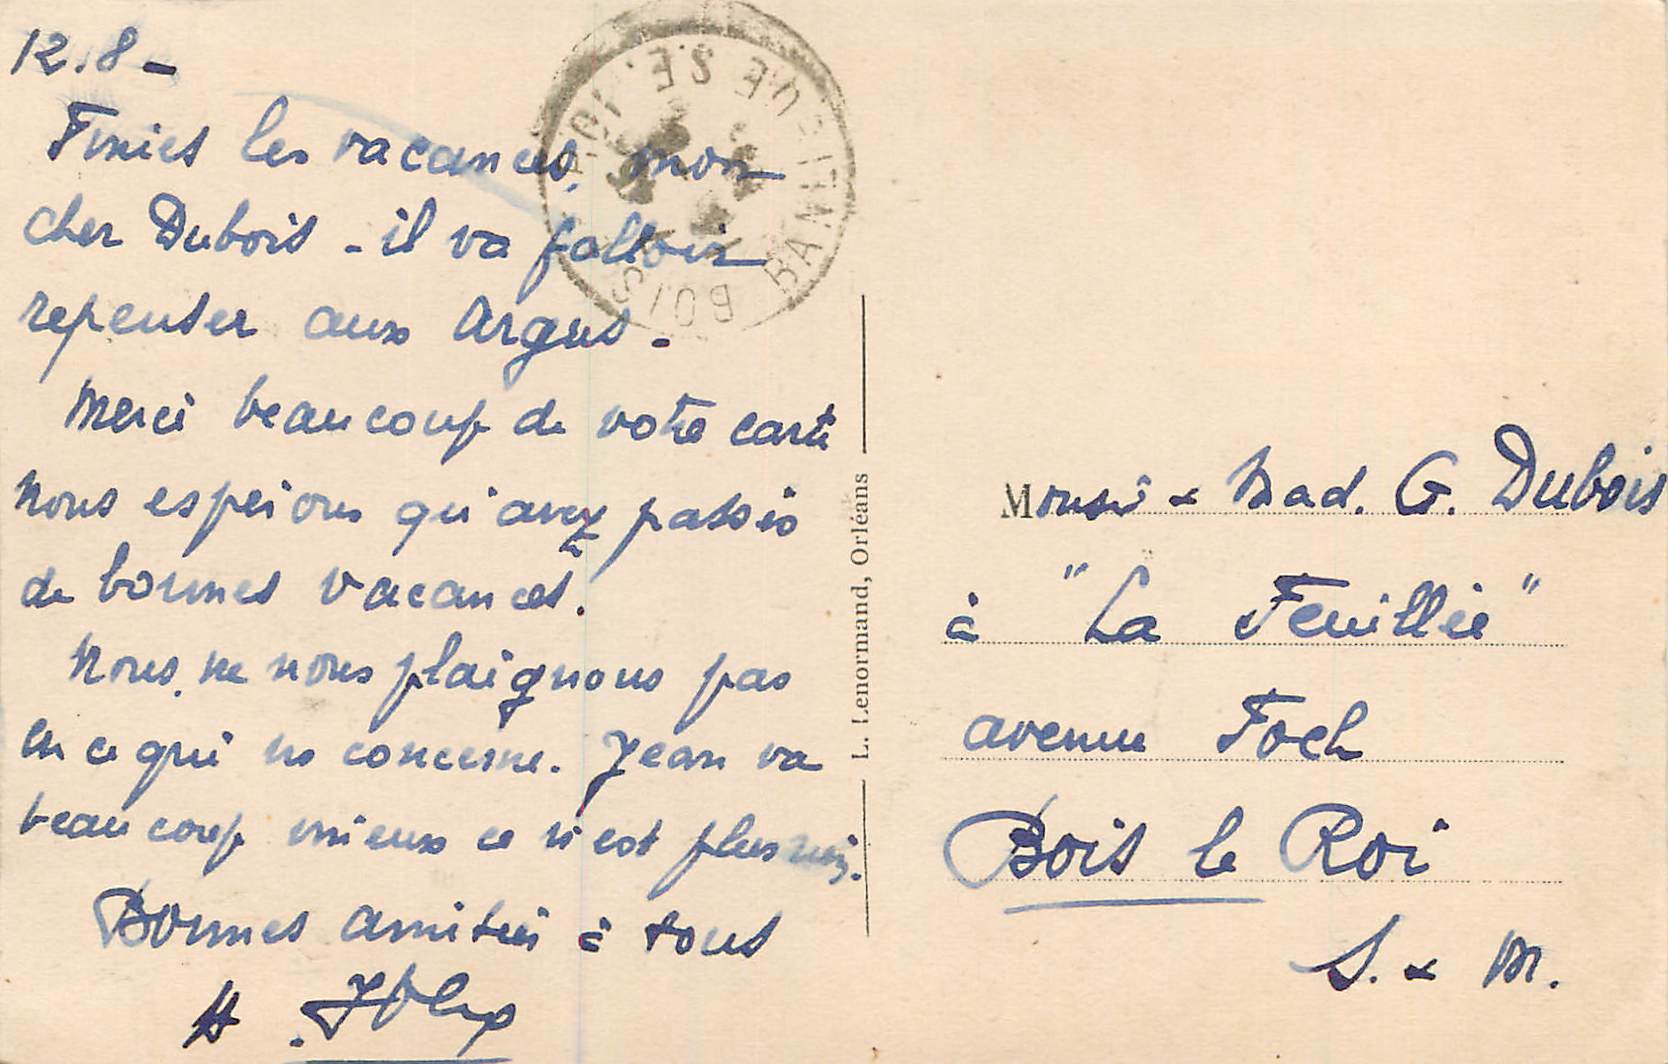 12.8 -
Finies les vacances, mon
cher Dubois - il va falloir
repenser aux Argus -
Merci beaucoup de votre carte
Nous espérons qu'avez passés
de bonnes vacances.
Nous ne nous plaignons pas
en ce qui ns concerne. Jean va
beaucoup mieux ce n'est plus rien.
Bonnes amitiés à tous
BOIS LE ROI
SE
L. Lenormand, Orléans
Monsr & Mad. G. Dubois
à "La Feuillée"
avenue Foch
Bois le Roi
S. & M.